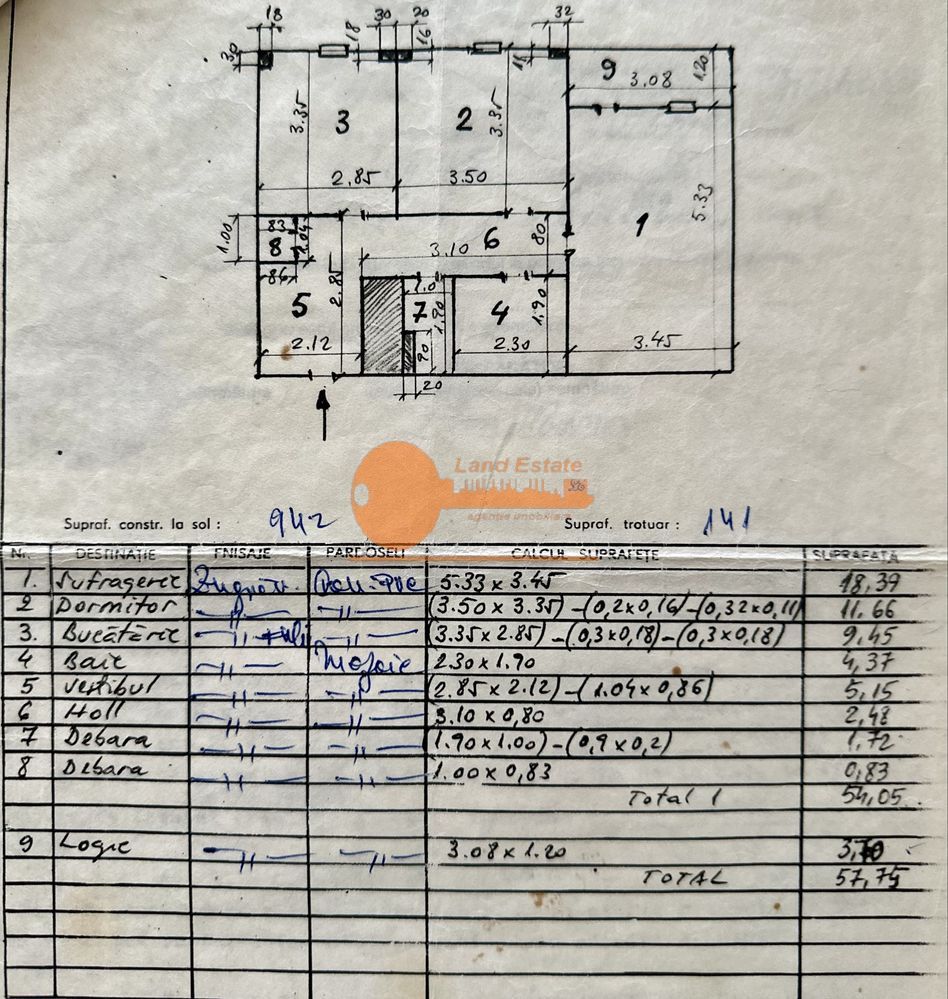 18 30 20 32
30 18 16 11
9 1.20
3.08
3.35 3 2 3.35
2.85 3.50
5.33
1
83 1.04 6 80
1.00 8 3.10
86 2.85 1.0
5 7 1.90 4 1.90
2.12 90 2.30 3.45
20
Land Estate
agenție imobiliară
Supraf. constr. la sol : 942 Supraf. trotuar : 141
Nr. DESTINAȚIE FNISAJE PARDOSELI CALCUL SUPRAFEȚE SUPRAFAȚA
1. Sufragerie Zugrav. Cov. PVC 5.33 x 3.45 18,39
2 Dormitor —"— —"— (3.50 x 3.35) - (0,2x0,16) - (0,32x0,11) 11.66
3. Bucătărie —"— —"— (3.35 x 2.85) - (0,3x0,18) - (0,3x0,18) 9,45
4 Baie —"— Mozaic 2.30 x 1.90 4,37
5 Vestibul —"— —"— (2.85 x 2.12) - (1.04 x 0,86) 5,15
6 Holl —"— —"— 3.10 x 0,80 2,48
7 Debara —"— —"— (1.90 x 1.00) - (0,9 x 0,2) 1.72
8 Debara —"— —"— 1.00 x 0,83 0,83
Total 1 54,05
9 Logie —"— —"— 3.08 x 1.20 3,70
TOTAL 57,75